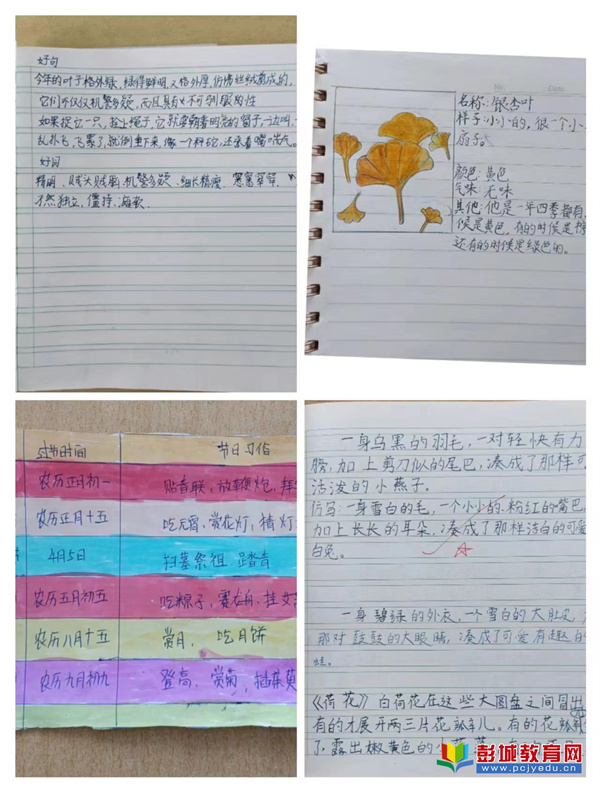 好句
今年的叶子格外绿，绿得鲜明，又格外厚，仿佛丝绒剪成的，
它们不仅仅机警多疑，而且具有
如果捉它一只，拴上绳子，它就
乱扑飞，飞累了，就倒垂下来，像一个秤砣，还张着嘴喘气。
好词
精明、贼头贼脑、机警多疑、细长精瘦、窸窸窣窣、
孑然独立、僵持、海碗、
名称：银杏叶
样子：小小的，很一个小
扇子。
颜色：黄色
气味：无味
其他：他是一年四季都有，
候是黄色，有的时候是
还有的时候是绿色的。
过节时间 节日习俗
农历正月初一 贴春联、放鞭炮、拜
农历正月十五 吃元宵、赏花灯、猜灯
4月5日 扫墓祭祖、踏青
农历五月初五 吃粽子、赛龙舟、挂艾
农历八月十五 赏月、吃月饼
农历九月初九 登高、赏菊、插茱萸
一身乌黑的羽毛，一对轻快有力
膀，加上剪刀似的尾巴，凑成了那样可
活泼的小燕子。
仿写：一身雪白的毛，一个小小的、粉红的嘴巴，
加上长长的耳朵，凑成了那样洁白的可爱
白兔。
一身碧绿的外衣，一个雪白的大肚皮，
那对鼓鼓的大眼睛，凑成了可爱有趣的
蛙。
《荷花》白荷花在这些大圆盘之间冒出
有的才展开两三片花瓣儿。有的花瓣
了，露出嫩黄色的小莲蓬
彭城教育网
www.pcjyedu.cn